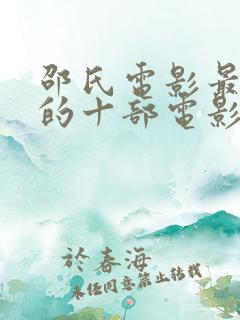 邵氏電影最
的十部電影
於春海
未经同意禁止转载